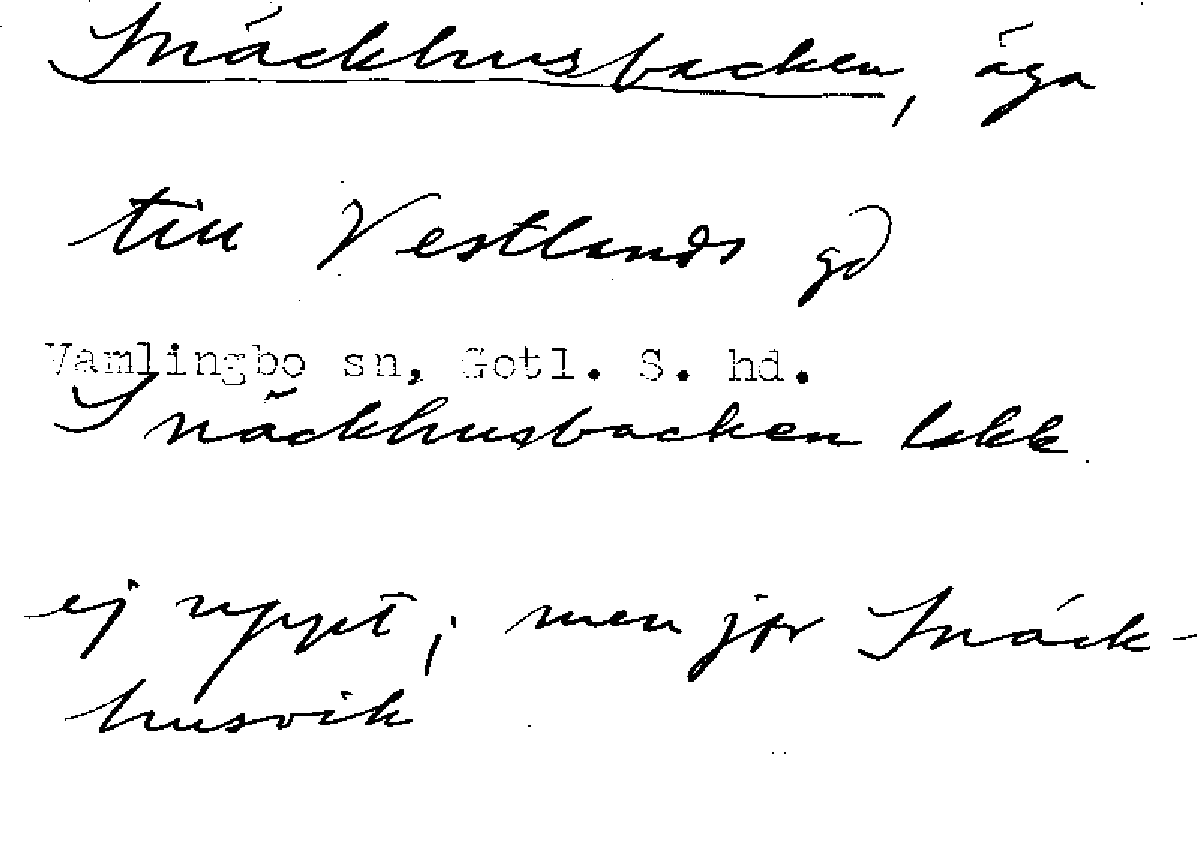 Snäckhusbacken, äga
till Vestlands gd
Vamlingbo sn, Gotl. S. hd.
Snäckhusbacken lokk
ej uppt; men jfr Snäck-
husvik